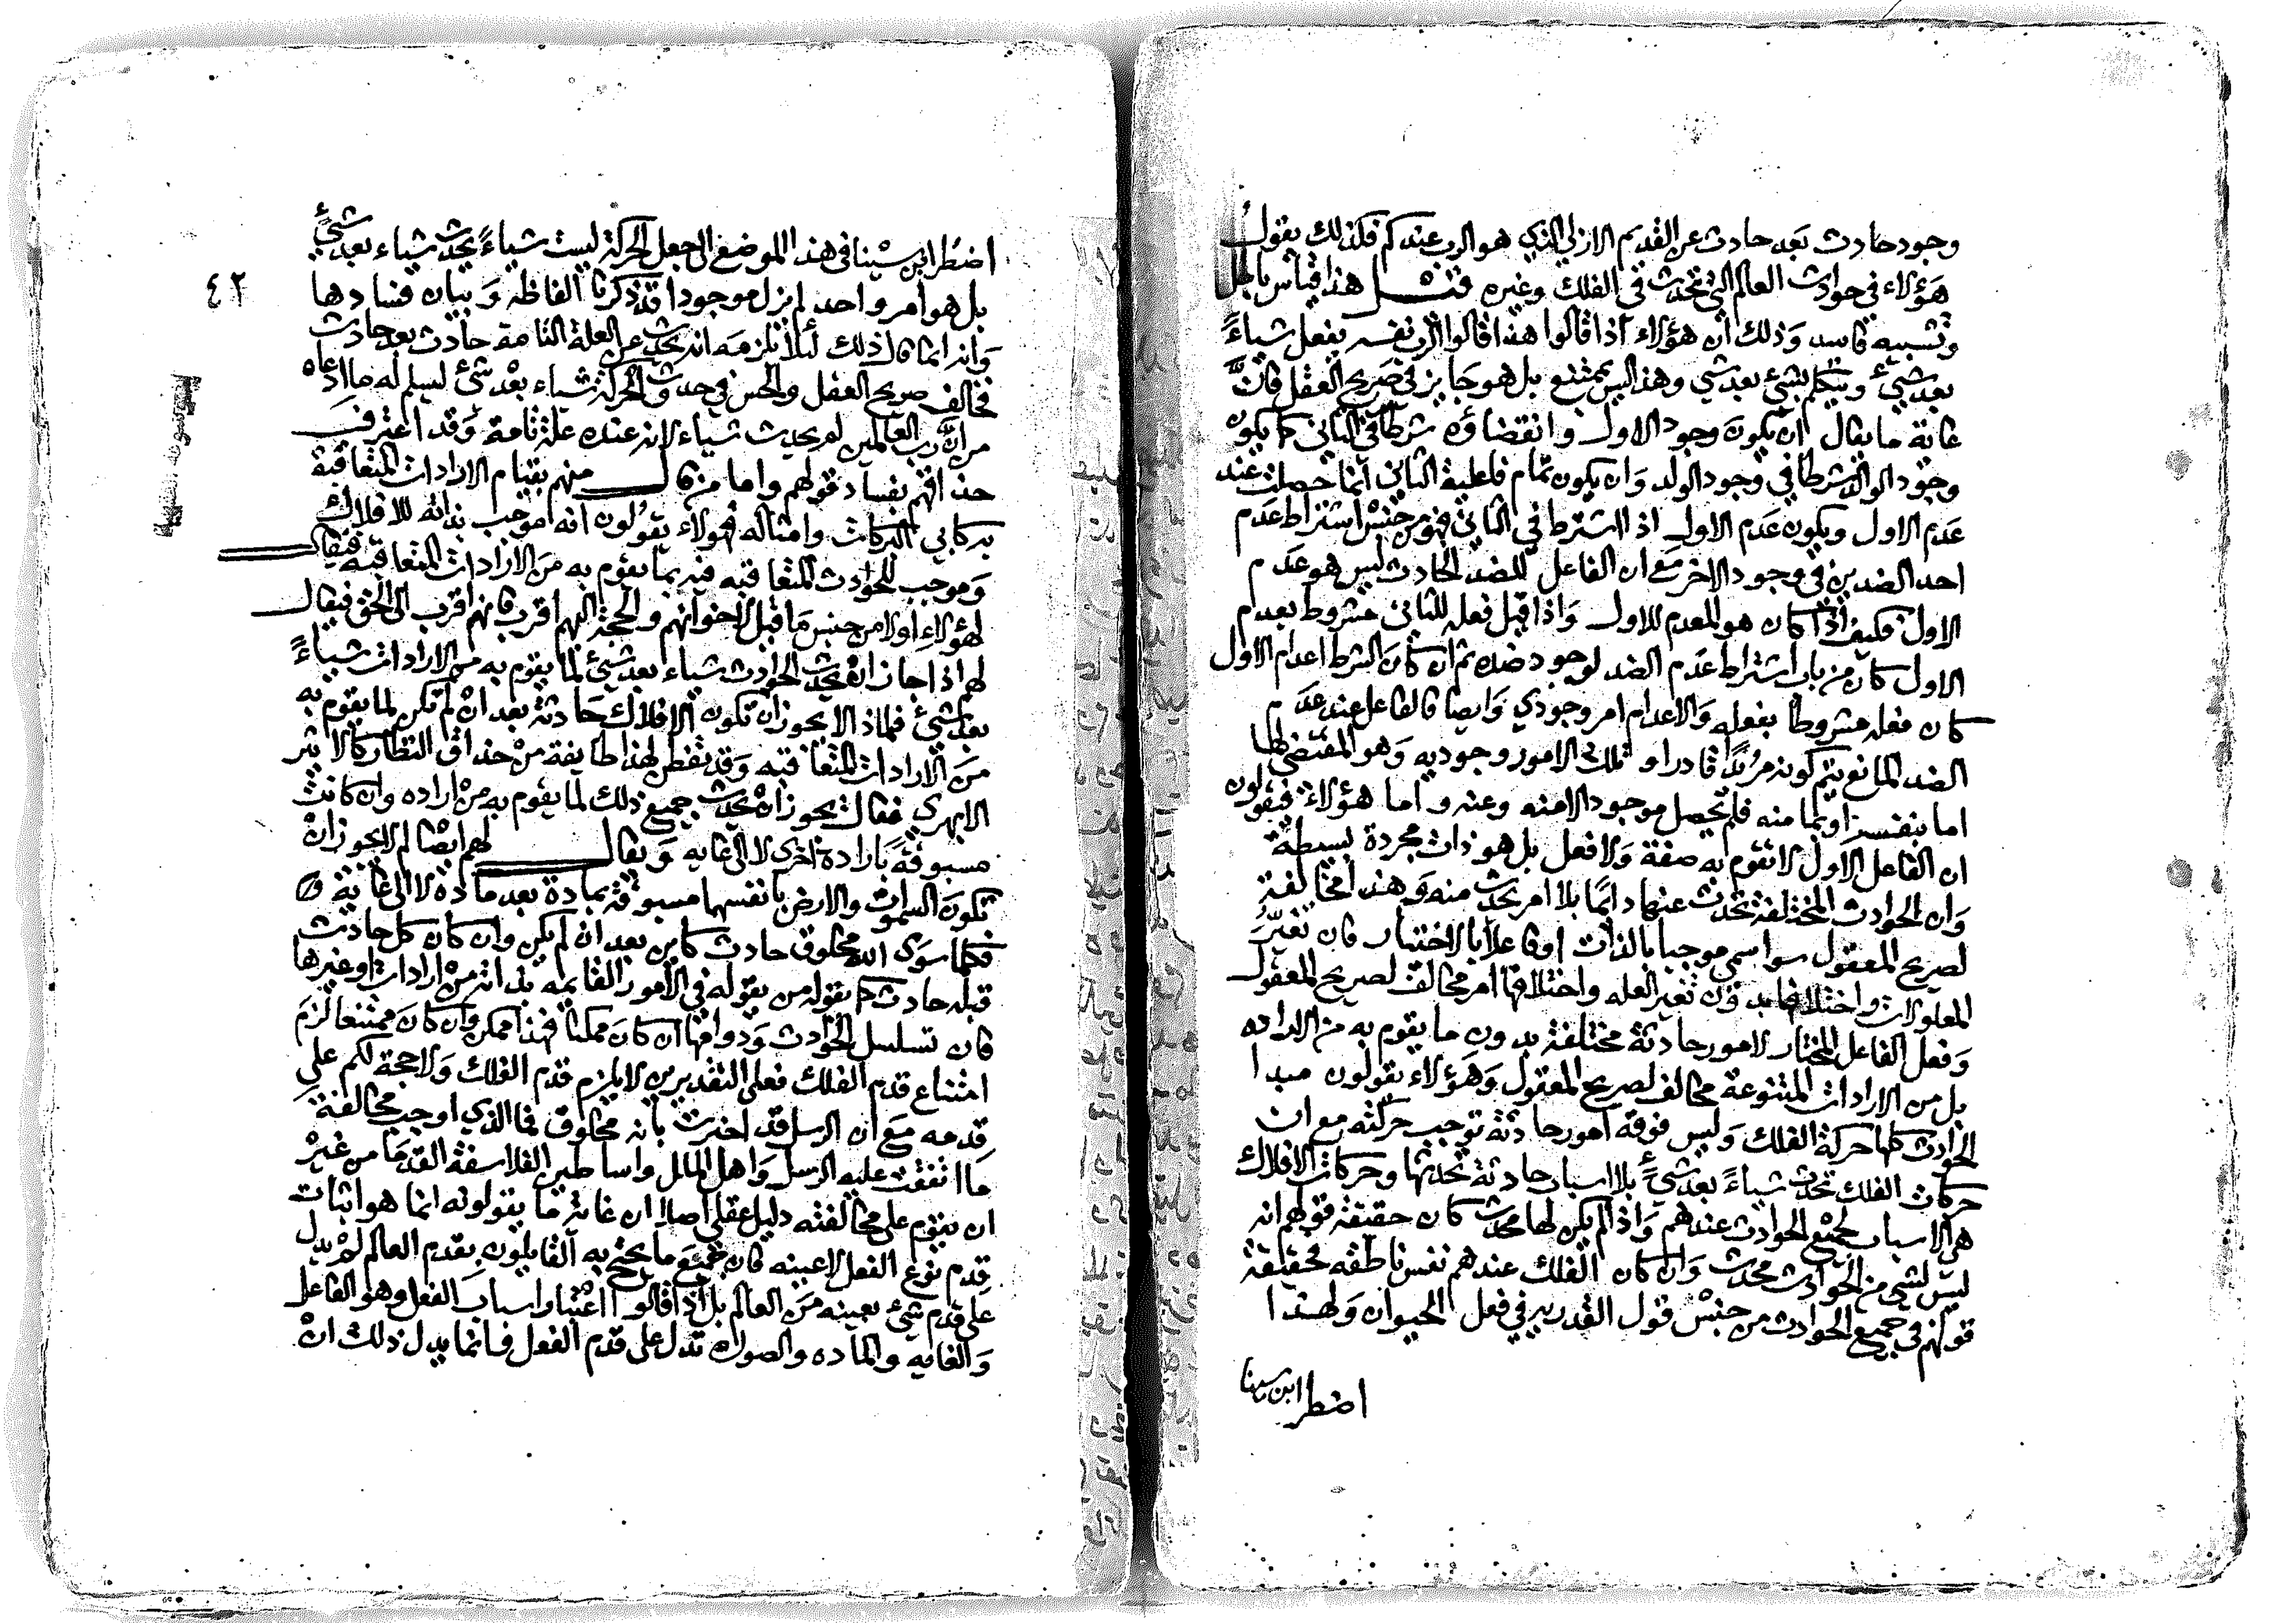 وجود حادث بعد حادث عن القديم الازلي الذي هو الرب عندكم فكذلك يقول
هؤلاء في حوادث العالم التي تحدث في الفلك وغيره قيل هذا قياس باطل
وتشبيه فاسد وذلك ان هؤلاء اذا قالوا هذا قالوا الرب نفسه يفعل شياءً
بعد شيء ويتكلم بشيء بعد شي وهذا ليس بممتنع بل هو جايز في صريح العقل فان
غاية ما يقال ان يكون وجود الاول وانقضاؤه شرطا في الثاني كما يكون
وجود الوالد شرطا في وجود الولد وان يكون تمام فاعلية الثاني انما حصلت عند
عدم الاول ويكون عدم الاول اذا اشترط في الثاني فهو من جنس اشتراط عدم
احد الضدين في وجود الاخر مع ان الفاعل للضد الحادث ليس هو عدم
الاول فكيف اذا كان هو المعدم للاول واذا قيل فعله للثاني مشروط بعدم
الاول كان من باب اشتراط عدم الضد لوجود ضده ثم ان كان الشرط اعدام الاول
كان فعله مشروطا بفعله والاعدام امر وجودي وايضا فالفاعل عند عدم
الضد المانع يتم كونه مريدًا قادرا وتلك الامور وجوديه وهو المقتضي لها
اما بنفسه او بما منه فلم يحصل موجود الا منه وعنه واما هؤلاء فيقولون
ان الفاعل الاول لا تقوم به صفة ولا فعل بل هو ذات مجردة بسيطة
وان الحوادث المختلفة تحدث عنها دائمًا بلا امر يحدث منه وهذا مخالفة
لصريح المعقول سوا سمي موجبا بالذات او فاعلا بالاختيار فان تغيُّر
المعلولات واختلافها بدون تغير العله واختلافها امر مخالف لصريح المعقول
وفعل الفاعل المختار لامور حادثة مختلفة بدون ما يقوم به من الاراده
بل من الارادات المتنوعة مخالف لصريح المعقول وهؤلاء يقولون مبدا
الحوادث كلها حركة الفلك وليس فوقه امور حادثة توجب حركته مع ان
حركات الفلك تحدث شياءً بعد شيءٍ بلا اسباب حادثة تحدثها وحركات الافلاك
هي الاسباب لجميع الحوادث عندهم واذا لم يكن لها محدث كان حقيقة قولهم انه
ليس لشي من الحوادث محدث وان كان الفلك عندهم نفس ناطقه فحقيقة
قولهم في جميع الحوادث من جنس قول القدريه في فعل الحيوان ولهذا
اضطر ابن سينا
اضطر ابن سينا في هذا الموضع الى جعل الحركة ليست شياءً يحدث شياء بعد شيءٍ
بل هو امر واحد لم يزل موجودا قد ذكرنا الفاظه وبيان فسادها
٤٢
وانه انما قال ذلك لئلا يلزمه انه يحدث عن العلة التامة حادث بعد حادث
فخالف صريح العقل والحس في حدوث الحركة شياء بعد شئ ليسلم له ما ادعاه
من ان رب العالمين لم يحدث شياء لانه عنده علة تامة وقد اعترف
حذاقهم بفساد قولهم واما من قال منهم بقيام الارادات المتعاقبة
به كابي البركات وامثاله فهولاء يقولون انه موجب بذاته للافلاك
وموجب للحوادث المتعاقبه فيه بما يقوم به من الارادات المتعاقبه فيقال
لهؤلاء اولا من جنس ما قيل لاخوانهم والحجة اليهم اقرب فانهم اقرب الى الحق فيقال
لهم اذا جاز ان يحدث الحوادث شياء بعد شيئ لما يقوم به من الارادات شياءً
بعد شيئ فلماذا لا يجوز ان تكون الافلاك حادثة بعد ان لم تكن لما يقوم به
من الارادات المتعاقبه وقد تفطن لهذا طايفة من حذاق النظار كالاثير
الابهري فقال يجوز ان يحدث جميع ذلك لما يقوم به من اراده وان كانت
مسبوقة بارادة اخرى لا الى غايه ويقال لهم ايضا لم لا يجوز ان
تكون السموات والارض بانفسها مسبوقة بمادة بعد مادة لا الى غاية و
فكلما سوى الله مخلوق حادث كاين بعد ان لم يكن وان كان كل حادث
قبله حادث كما يقوله من يقوله في الامور القايمه بذاته من ارادات او غيرها
فان تسلسل الحوادث ودوامها ان كان ممكنا فهذا ممكن وان كان ممتنعا لزم
امتناع قدم الفلك فعلى التقديرين لا يلزم قدم الفلك ولا حجة لكم على
قدمه مع ان الرسل قد اخبرت بانه مخلوق فما الذي اوجب مخالفة
ما اتفقت عليه الرسل واهل الملل واساطين الفلاسفة القدما من غير
ان يقوم على مخالفته دليل عقلي اصلا ان غاية ما يقولونه انما هو اثبات
قدم نوع الفعل لا عينه فان جميع ما يحتج به القايلون بقدم العالم لم يدل
على قدم شئ بعينه من العالم بل اذا قالوا اعتبار اسباب الفعل وهو الفاعل
والغايه والماده والصوره تدل على قدم الفعل فانما يدل ذلك ان